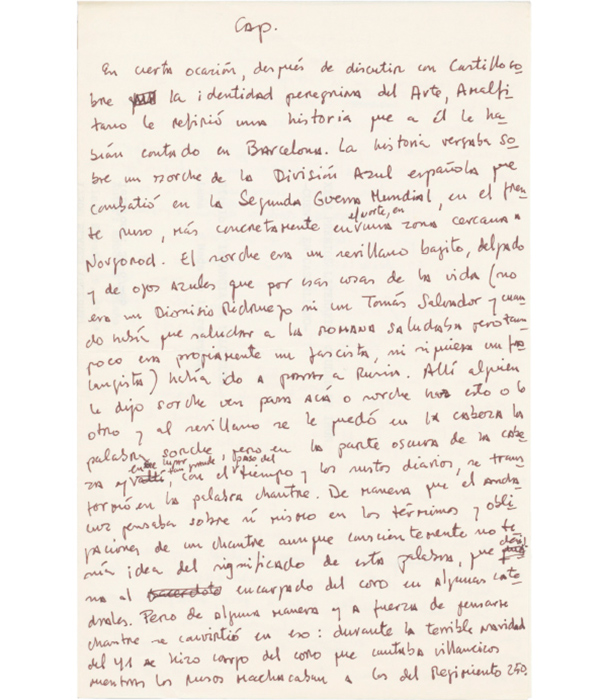 Cap.
En cierta ocasión, después de discutir con Castillo so
bre la identidad peregrina del Arte, Amalfi
tano le refirió una historia que a él le ha
bían contado en Barcelona. La historia versaba so
bre un sorche de la División Azul española que
combatió en la Segunda Guerra Mundial, en el fren
te ruso, más concretamente en el norte, en una zona cercana a
Novgorod. El sorche era un sevillano bajito, delgado
y de ojos azules que por esas cosas de la vida (no
era un Dionisio Ridruejo ni un Tomás Salvador y cuan
do había que saludar a la romana saludaba pero tam
poco era propiamente un fascista, ni siquiera un fa
langista) había ido a parar a Rusia. Allí alguien
le dijo sorche ven para acá o sorche haz esto o lo
otro y al sevillano se le quedó en la cabeza la
palabra sorche, pero en la parte oscura de la cabe
za y en ese lugar tan grande, con el paso del tiempo y los sustos diarios, se trans
formó en la palabra chantre. De manera que el anda
luz pensaba sobre sí mismo en los términos y obli
gaciones de un chantre aunque conscientemente no te
nía idea del significado de esta palabra, que desig
na al encargado del coro en algunas cate
drales. Pero de alguna manera y a fuerza de pensarse
chantre se convirtió en eso: durante la terrible navidad
del 41 se hizo cargo del coro que cantaba villancicos
mientras los rusos machacaban a los del Regimiento 250.